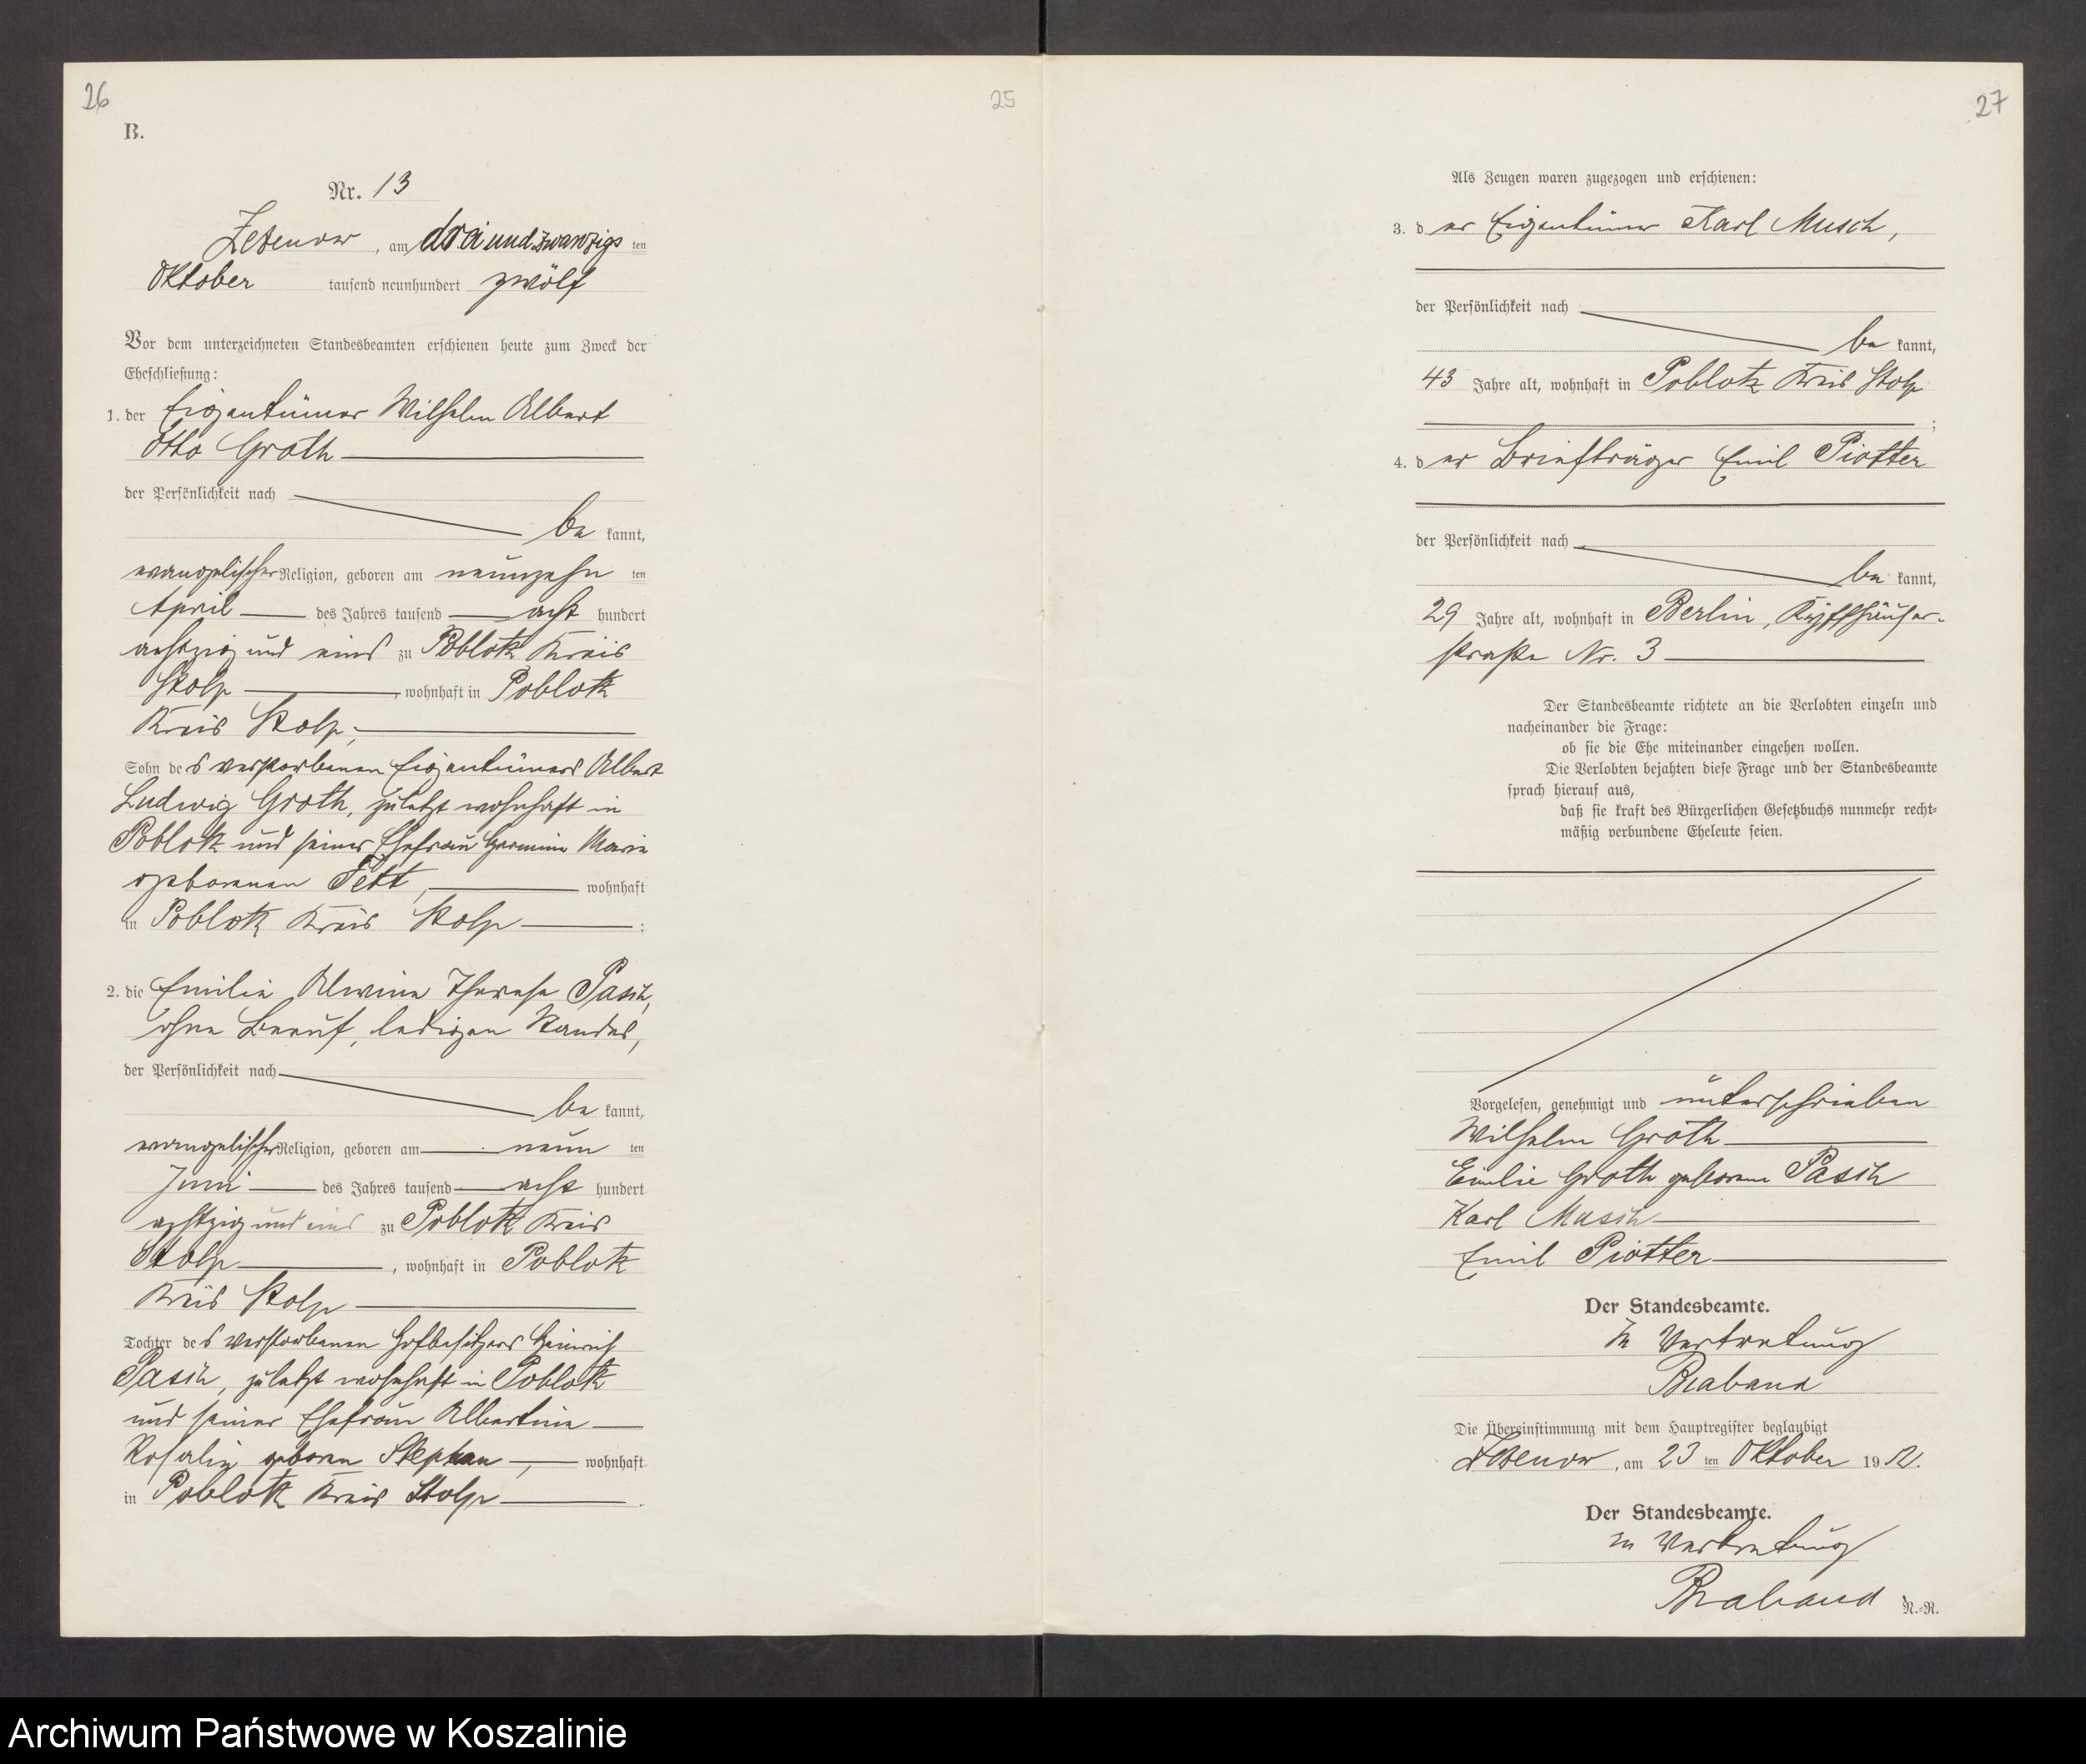 26
25
B.
Nr. 13
Zezenow, am dreiundzwanzigsten
Oktober tausend neunhundert zwölf
Vor dem unterzeichneten Standesbeamten erschienen heute zum Zweck der
Eheschließung:
1. der Eigentümer Wilhelm Albert
Otto Groth
der Persönlichkeit nach
be kannt,
evangelischer Religion, geboren am neunzehn ten
April des Jahres tausend acht hundert
achtzig und eins zu Poblotz Kreis
Stolp, wohnhaft in Poblotz
Kreis Stolp;
Sohn des verstorbenen Eigentümers Albert
Ludwig Groth, zuletzt wohnhaft in
Poblotz und seiner Ehefrau Hermine Marie
geborenen Fett, wohnhaft
in Poblotz Kreis Stolp;
2. die Emilie Alwine Therese Pasch,
ohne Beruf, ledigen Standes,
der Persönlichkeit nach
be kannt,
evangelischer Religion, geboren am neun ten
Juni des Jahres tausend acht hundert
achtzig und eins zu Poblotz Kreis
Stolp, wohnhaft in Poblotz
Kreis Stolp
Tochter des verstorbenen Hofbesitzers Heinrich
Pasch, zuletzt wohnhaft in Poblotz
und seiner Ehefrau Albertine
Rosalie geboren Stephan, wohnhaft
in Poblotz Kreis Stolp.
27
Als Zeugen waren zugezogen und erschienen:
3. der Eigentümer Karl Musch,
der Persönlichkeit nach
be kannt,
43 Jahre alt, wohnhaft in Poblotz Kreis Stolp
;
4. der Briefträger Emil Piotter
der Persönlichkeit nach
be kannt,
29 Jahre alt, wohnhaft in Berlin, Kyffhäuser-
straße Nr. 3
Der Standesbeamte richtete an die Verlobten einzeln und
nacheinander die Frage:
ob sie die Ehe miteinander eingehen wollen.
Die Verlobten bejahten diese Frage und der Standesbeamte
sprach hierauf aus,
daß sie kraft des Bürgerlichen Gesetzbuchs nunmehr recht-
mäßig verbundene Eheleute seien.
Vorgelesen, genehmigt und unterschrieben
Wilhelm Groth
Emilie Groth geborene Pasch
Karl Musch
Emil Piotter
Der Standesbeamte.
In Vertretung
Braband
Die Übereinstimmung mit dem Hauptregister beglaubigt
Zezenow, am 23 ten Oktober 1912.
Der Standesbeamte.
In Vertretung
Braband
N.-R.
Archiwum Państwowe w Koszalinie